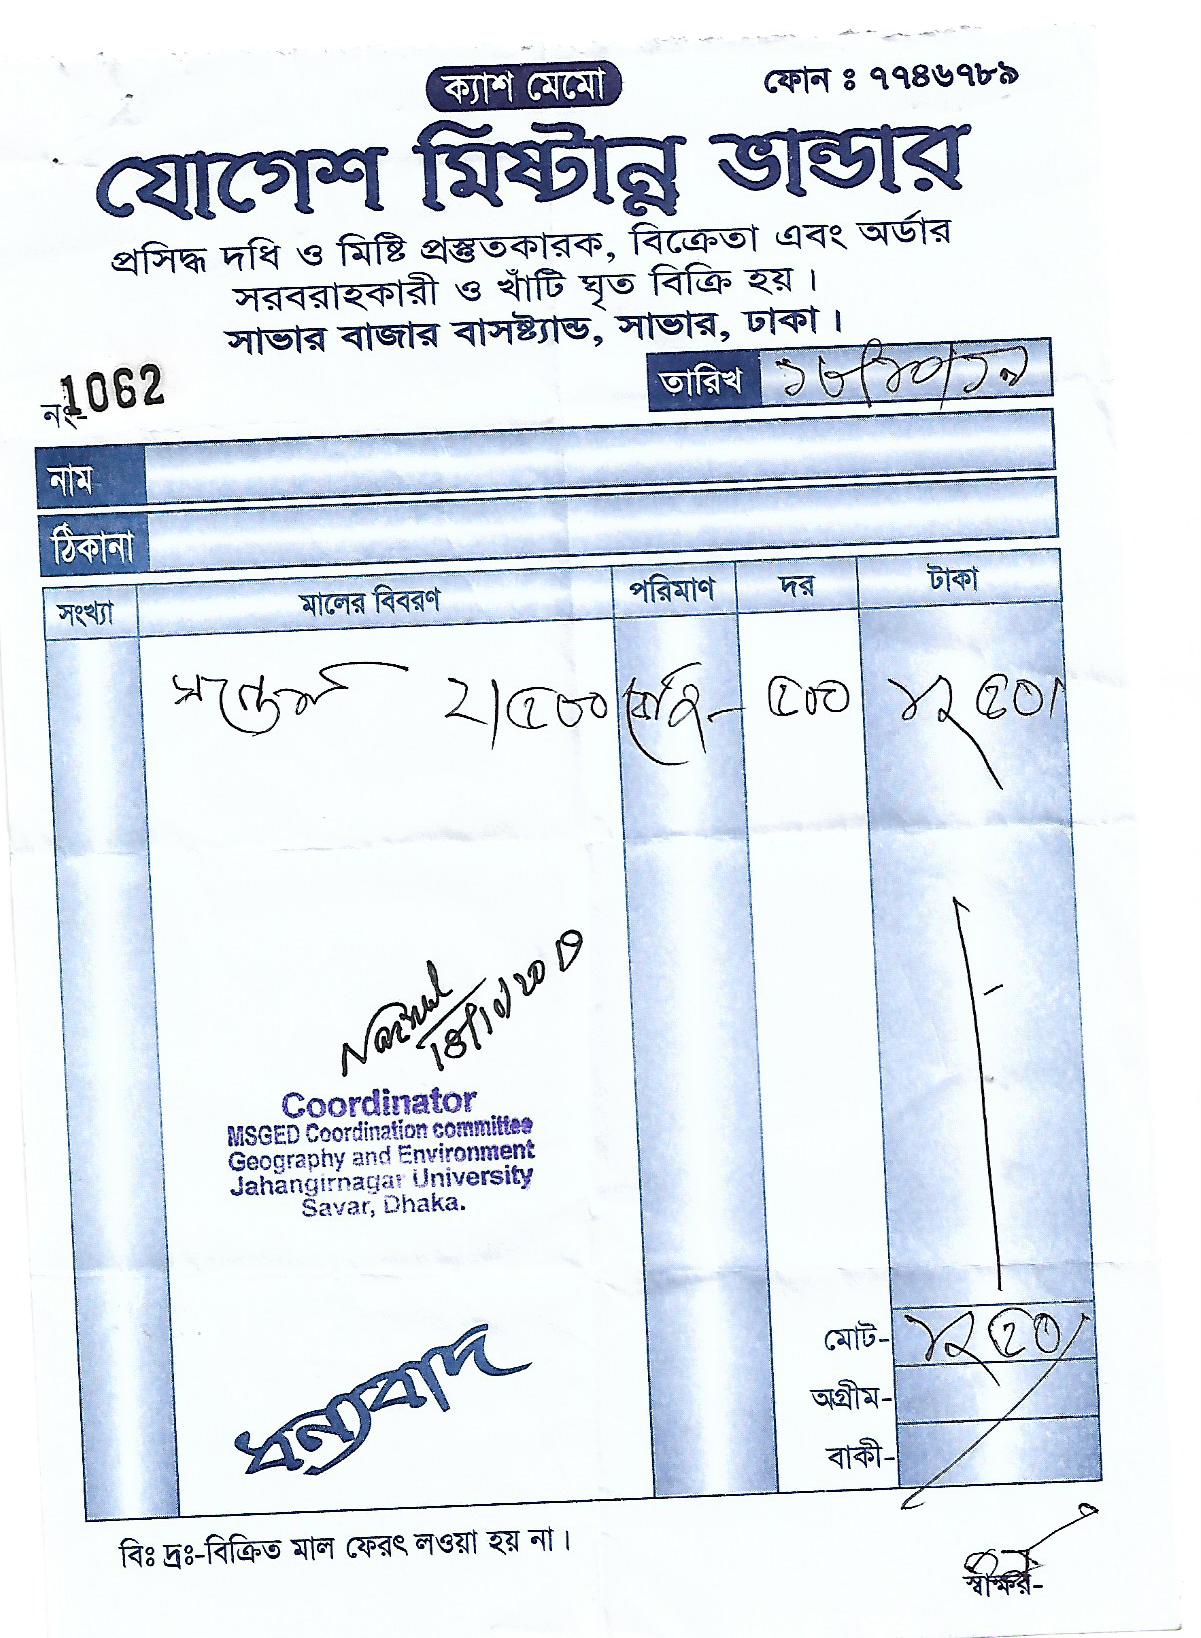 ক্যাশ মেমো
ফোন ঃ ৭৭৪৬৭৮৯
যোগেশ মিষ্টান্ন ভান্ডার
প্রসিদ্ধ দধি ও মিষ্টি প্রস্তুতকারক, বিক্রেতা এবং অর্ডার
সরবরাহকারী ও খাঁটি ঘৃত বিক্রি হয়।
সাভার বাজার বাসষ্ট্যান্ড, সাভার, ঢাকা।
নং- 1062
তারিখ ১৮/১০/১৯
নাম
ঠিকানা
সংখ্যা মালের বিবরণ পরিমাণ দর টাকা
সন্দেশ ২/৫০০ ৫০০ ১২৫০/
18/10/2019
Coordinator
MSGED Coordination committee
Geography and Environment
Jahangirnagar University
Savar, Dhaka.
মোট- ১২৫০/
অগ্রীম-
বাকী-
ধন্যবাদ
বিঃ দ্রঃ-বিক্রিত মাল ফেরৎ লওয়া হয় না।
স্বাক্ষর-